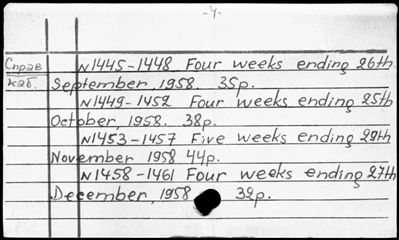 -4-
Справ N1445-1448 Four weeks ending 26th
каб. September, 1958. 35p.
N1449-1452 Four weeks ending 25th
October, 1958. 38p.
N1453-1457 Five weeks ending 29th
November 1958 44p.
N1458-1461 Four weeks ending 27th
December, 1958 32p.